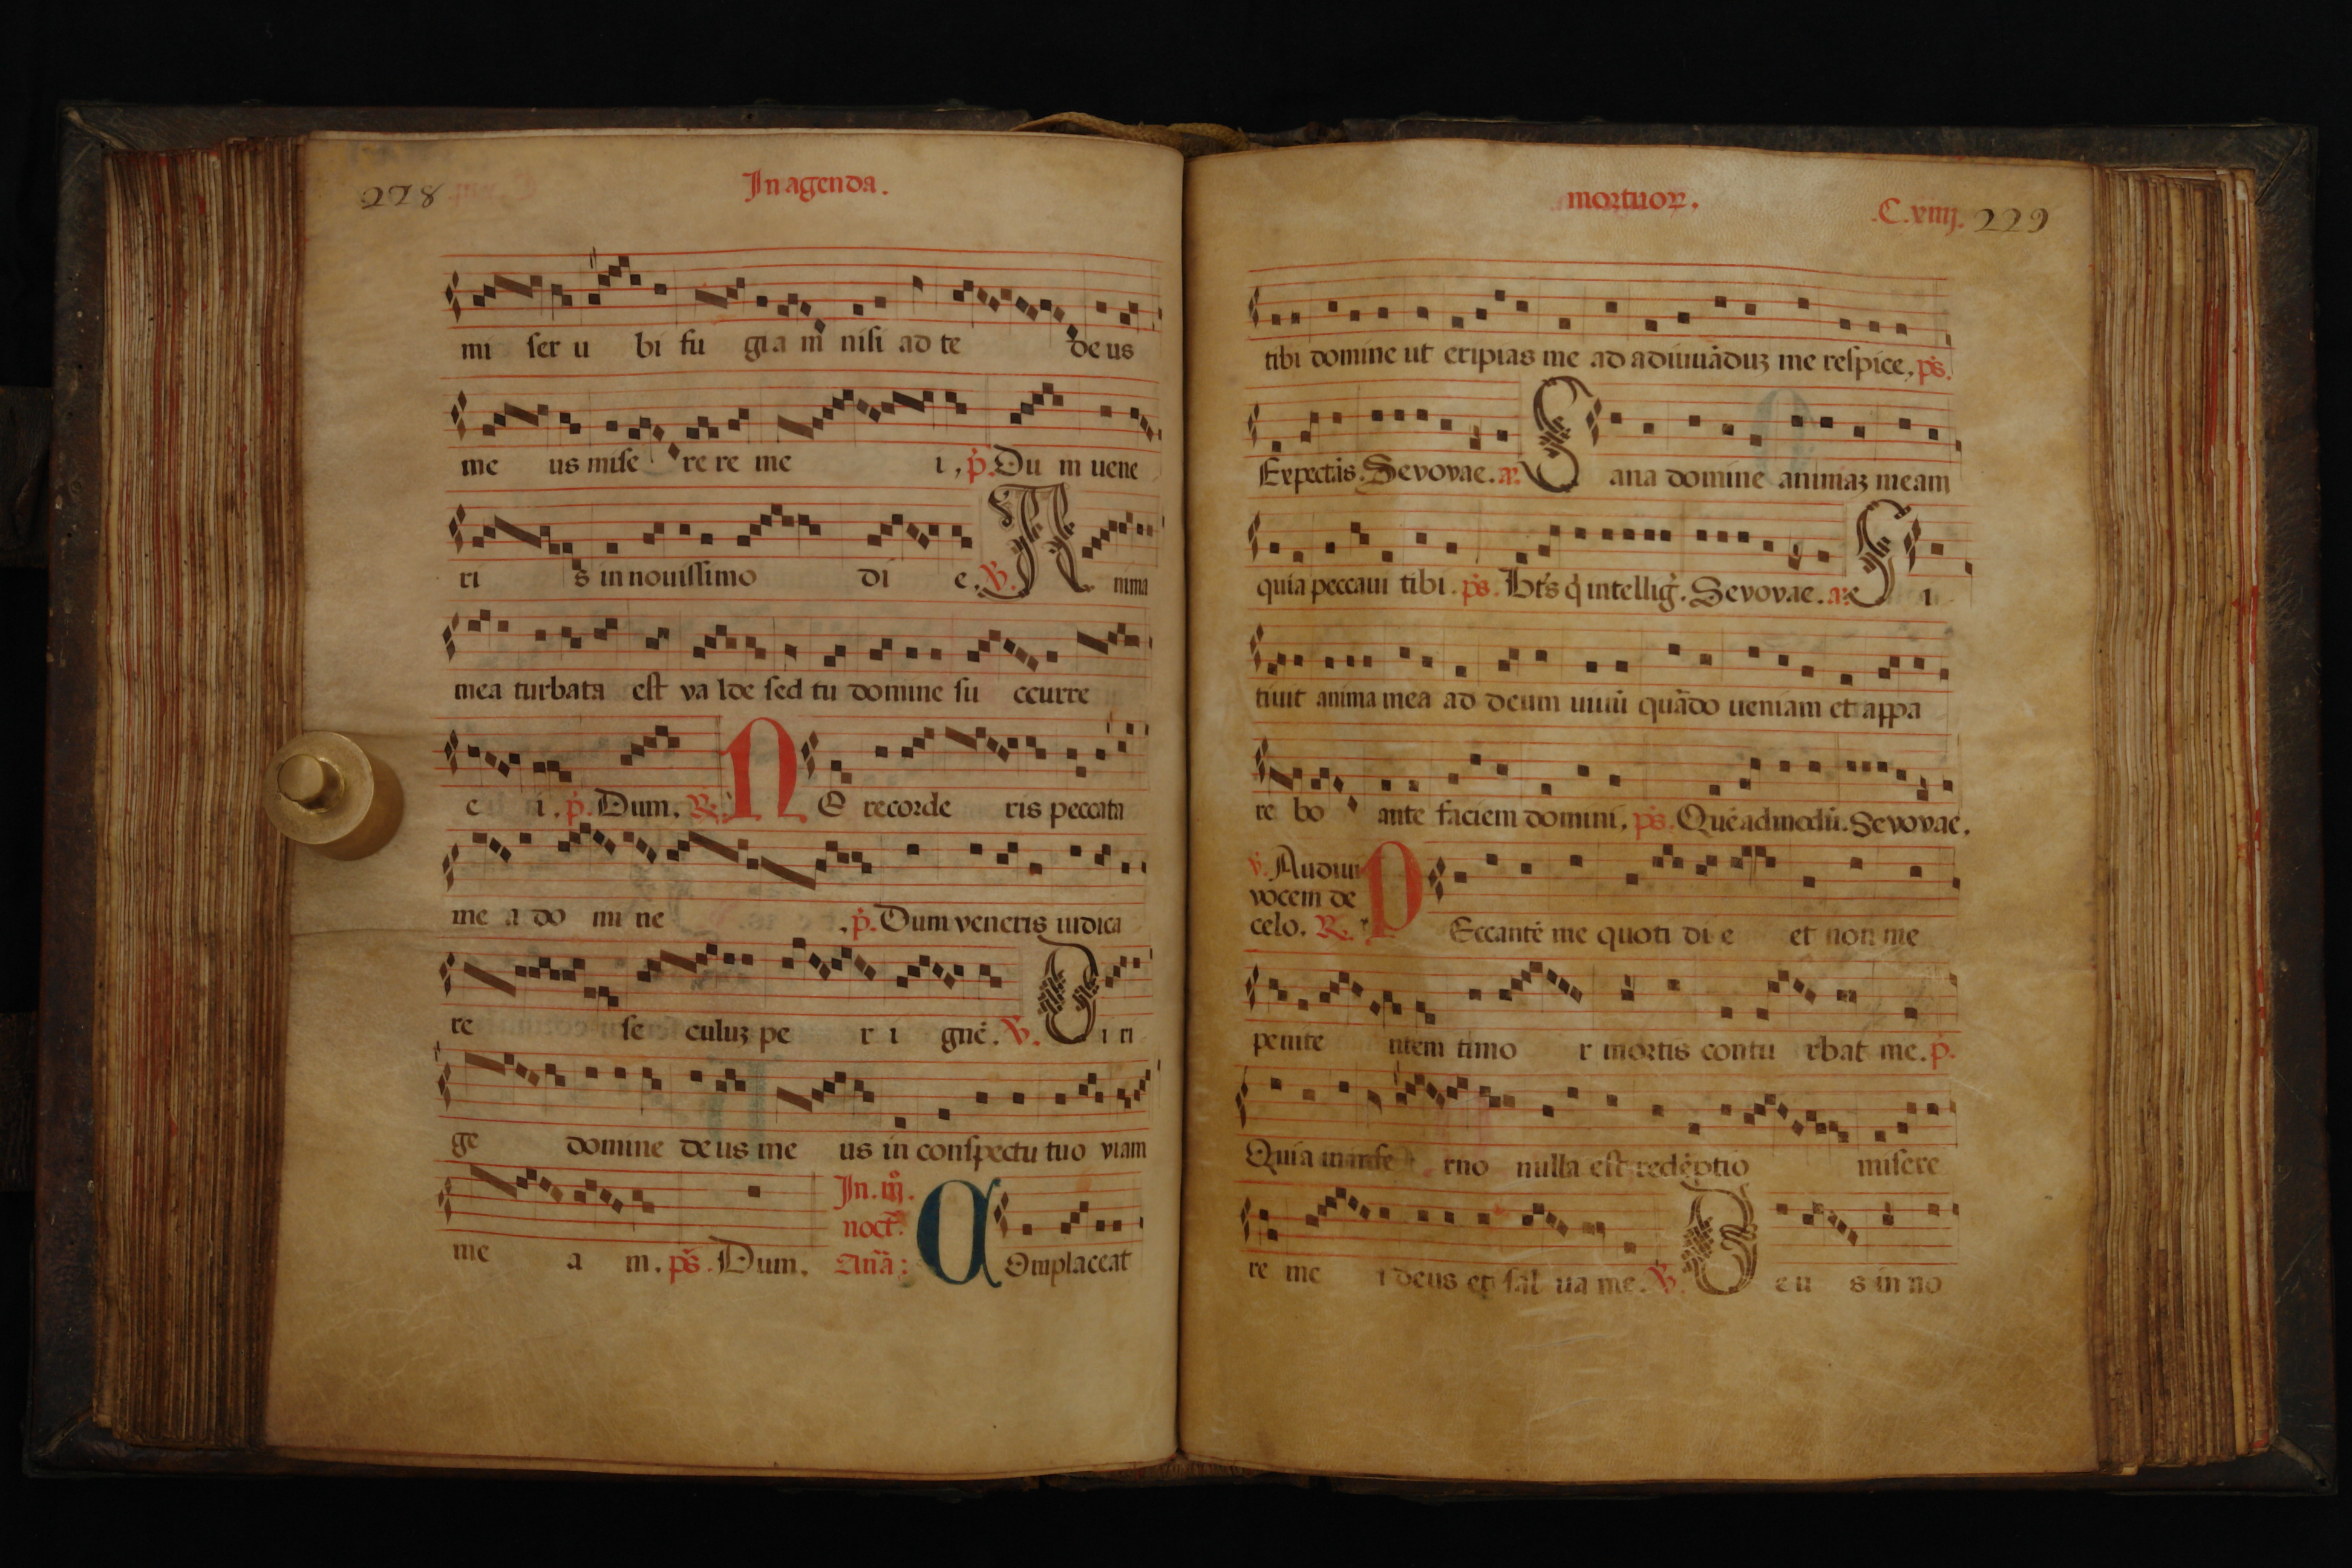 228
In agenda.
mi ser u bi fu gia m nisi ad te de us
me us mise re re me i, p. Du m uene
ri s in nouissimo di e. V. A nima
mea turbata est va lde sed tu domine su ccurre
e i. p. Dum. R. N E recorde ris peccata
me a do mi ne . p. Dum veneris iudica
re se culuʒ pe r i gnē. V. D i ri
ge domine de us me us in conspectu tuo viam
me a m. ps. Dum.
In. iij. noct. Añã: C Omplaceat
mortuoꝝ.
.C.xiiij. 229
tibi domine ut eripias me ad adiuuāduʒ me respice, ps.
Expectās. Sevovae. a. S ana domine animaʒ meam
quia peccaui tibi. ps. Bt's q intellig. Sevovae. a. S i
tiuit anima mea ad deum uiuū quādo ueniam et appa
re bo ante faciem domini, ps. Quēadmodū. Sevovae.
v. Audiui
vocem de
celo. R. P Eccantē me quoti di e et non me
penite ntem timo r mortis contu rbat me. p.
Quia in infe rno nulla est redēptio misere
re me i deus et sal ua me. V. D e u s in no